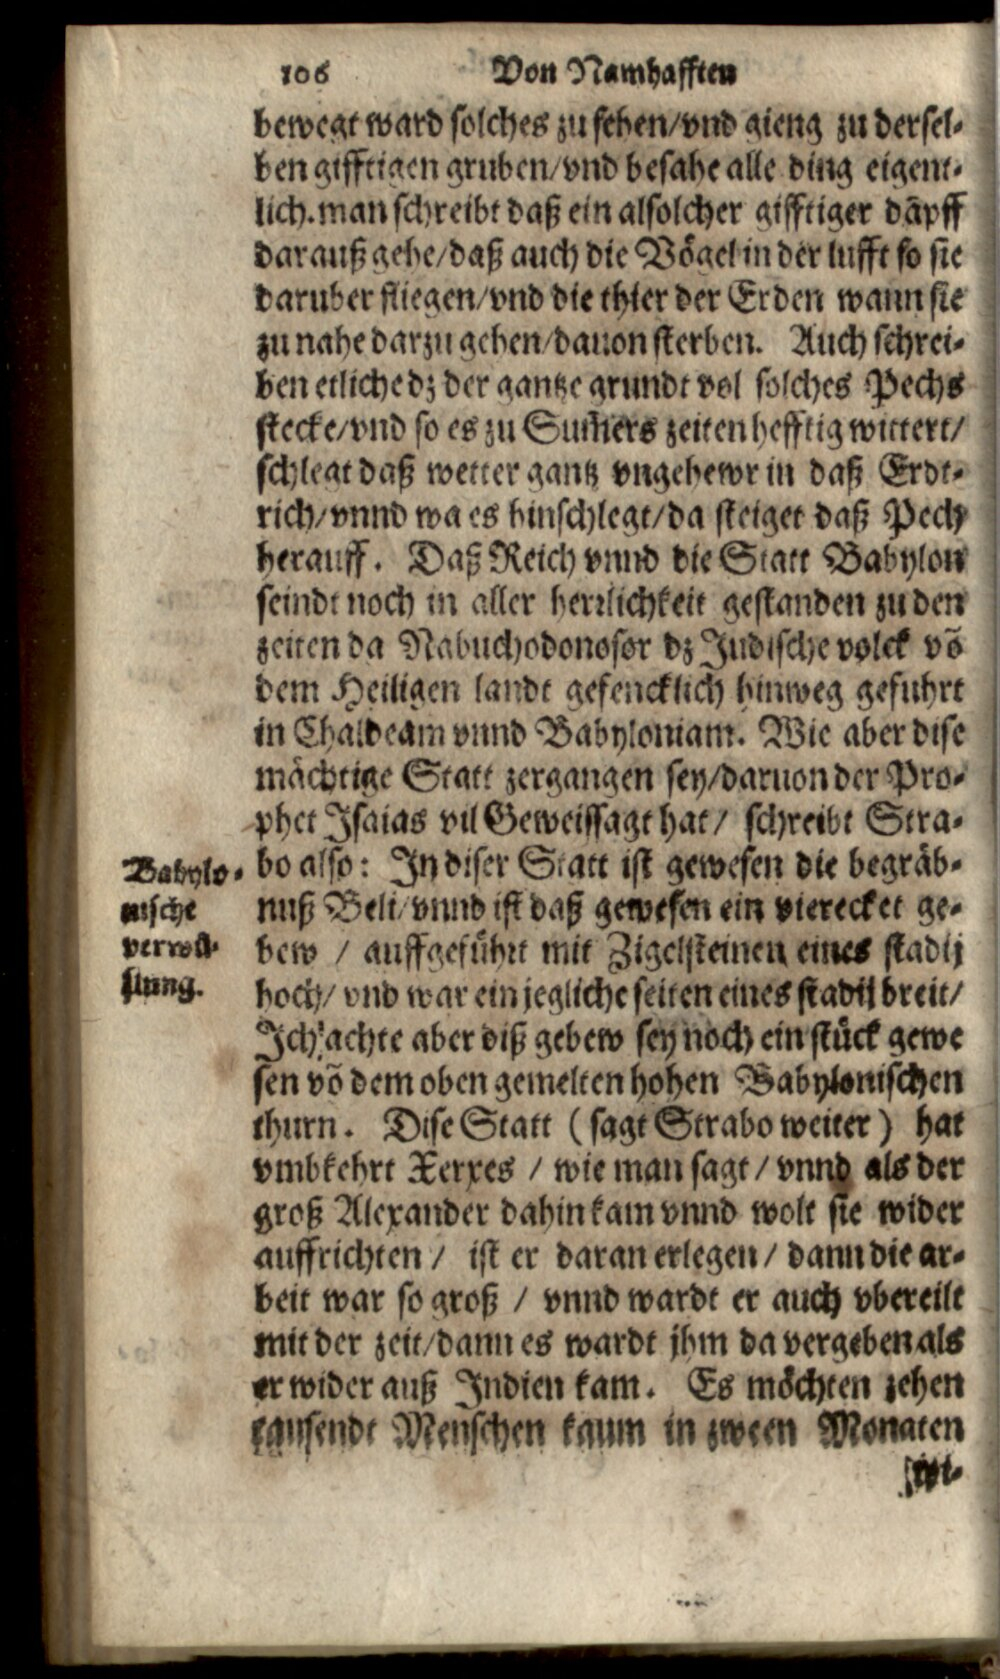 106 Von Namhafften
bewegt ward solches zu sehen/vnd gieng zu dersel-
ben gifftigen gruben/vnd besahe alle ding eigent-
lich.man schreibt daß ein alsolcher gifftiger dāpff
darauß gehe/daß auch die Vögel in der lufft so sie
daruber fliegen/vnd die thier der Erden wann sie
zu nahe darzu gehen/dauon sterben. Auch schrei-
ben etliche dz der gantze grundt vol solches Pechs
stecke/vnd so es zu Sum̃ers zeiten hefftig wittert/
schlegt daß wetter gantz vngehewr in daß Erdt-
rich/vnnd wa es hinschlegt/da steiget daß Pech
herauff. Daß Reich vnnd die Statt Babylon
seindt noch in aller herrlichkeit gestanden zu den
zeiten da Nabuchodonosor dz Judische volck võ
dem Heiligen landt gefencklich hinweg gefuhrt
in Chaldeam vnnd Babyloniam. Wie aber dise
mächtige Statt zergangen sey/daruon der Pro-
phet Isaias vil Geweissagt hat/ schreibt Stra-
bo also: In diser Statt ist gewesen die begräb-
nuß Beli/vnnd ist daß gewesen ein vierecket ge-
bew / auffgeführt mit Zigelsteinen eines stadij
hoch/ vnd war ein jegliche seiten eines stadij breit/
Ich achte aber diß gebew sey noch ein stück gewe
sen võ dem oben gemelten hohen Babylonischen
thurn. Dise Statt (sagt Strabo weiter) hat
vmbkehrt Xerxes / wie man sagt/ vnnd als der
groß Alexander dahin kam vnnd wolt sie wider
auffrichten / ist er daran erlegen/ dann die ar-
beit war so groß / vnnd wardt er auch vbereilt
mit der zeit/dann es wardt jhm da vergeben als
er wider auß Indien kam. Es möchten zehen
tausendt Menschen kaum in zween Monaten
Babylo-
nische
verwü-
stung.